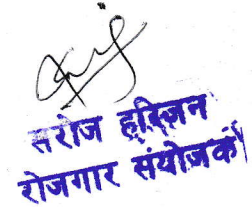 सरोज हरिजन
रोजगार संयोजक